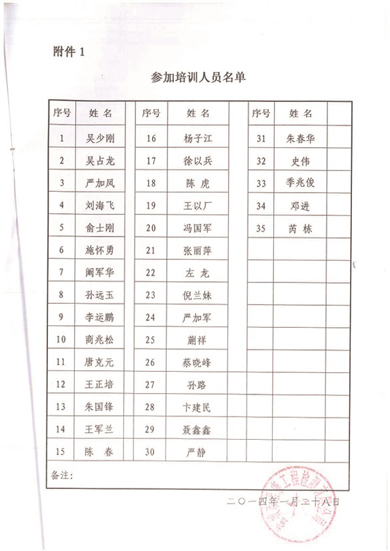 附件 1
参加培训人员名单
序号 姓名 序号 姓名 序号 姓名
1 吴少刚 16 杨子江 31 朱春华
2 吴占龙 17 徐以兵 32 史伟
3 严加凤 18 陈虎 33 季兆俊
4 刘海飞 19 王以厂 34 邓进
5 俞士刚 20 冯国军 35 芮栋
6 施怀勇 21 张丽萍
7 阚军华 22 左龙
8 孙远玉 23 倪兰妹
9 李运鹏 24 严加军
10 商兆松 25 蒯祥
11 唐克元 26 蔡晓峰
12 王正培 27 孙路
13 朱国锋 28 卞建民
14 王军兰 29 聂鑫鑫
15 陈春 30 严静
备注：
二〇一四年一月二十八日
工程检测